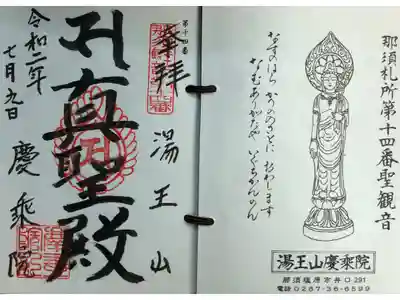 那須札所第十四番聖観音
なすのはら おわします
なむありがたや いぐちかんのん
湯王山慶乘院
那須塩原市井口291
電話 0287-36-6599
第十四番
奉拝
湯王山
真聖殿
慶乘院
令和二年
七月九日